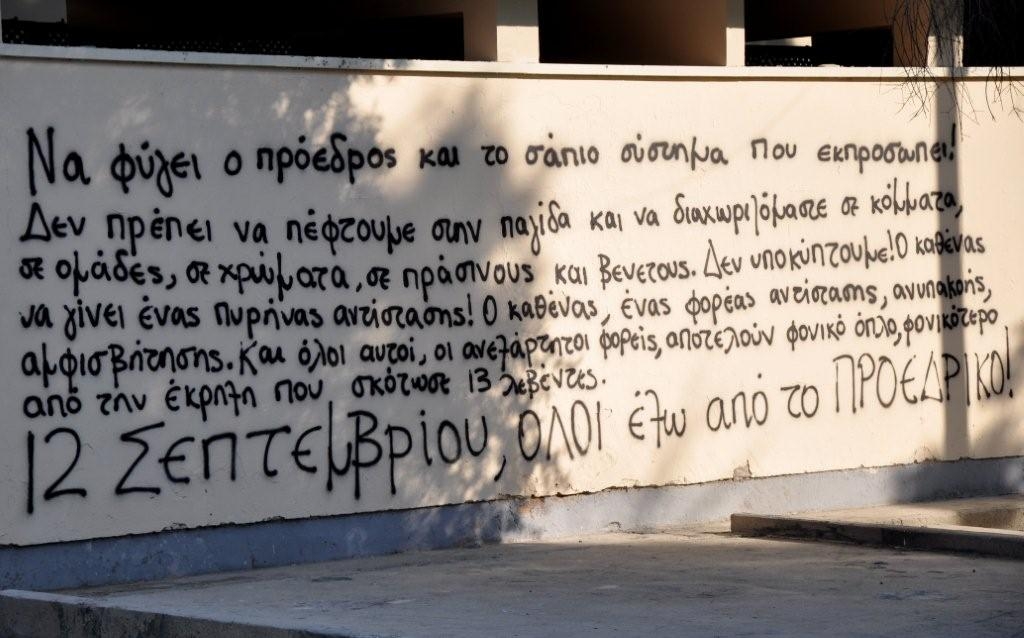 Να φύγει ο πρόεδρος και το σάπιο σύστημα που εκπροσωπεί!
Δεν πρέπει να πέφτουμε στην παγίδα και να διαχωριζόμαστε σε κόμματα,
σε ομάδες, σε χρώματα, σε πράσινους και βένετους. Δεν υποκύπτουμε! Ο καθένας
να γίνει ένας πυρήνας αντίστασης! Ο καθένας, ένας φορέας αντίστασης, ανυπακοής,
αμφισβήτησης. Και όλοι αυτοί, οι ανεξάρτητοι φορείς, αποτελούν φονικό όπλο, φονικότερο
από την έκρηξη που σκότωσε 13 λεβέντες.
12 Σεπτεμβρίου, ΟΛΟΙ έξω από το ΠΡΟΕΔΡΙΚΟ!